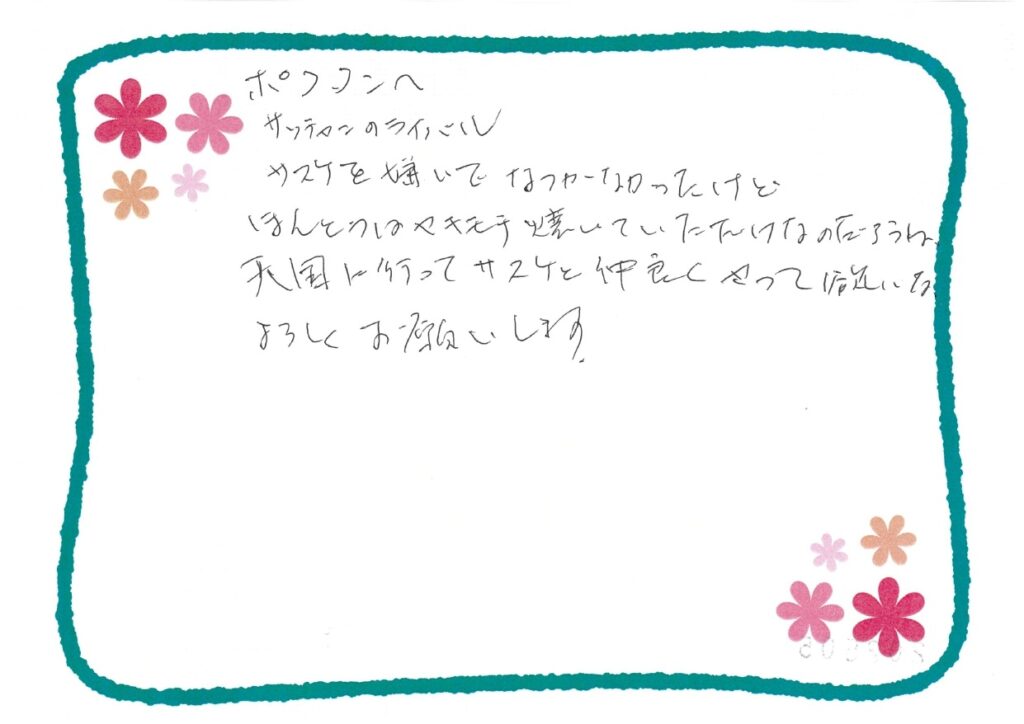 ポワンへ
サッチャンのライバル
サスケを嫌いで なつかーなかったけど
ほんとうはヤキモチ焼いていただけなのだろうね、
天国に行ってサスケと仲良くやって
よろしくお願いします。